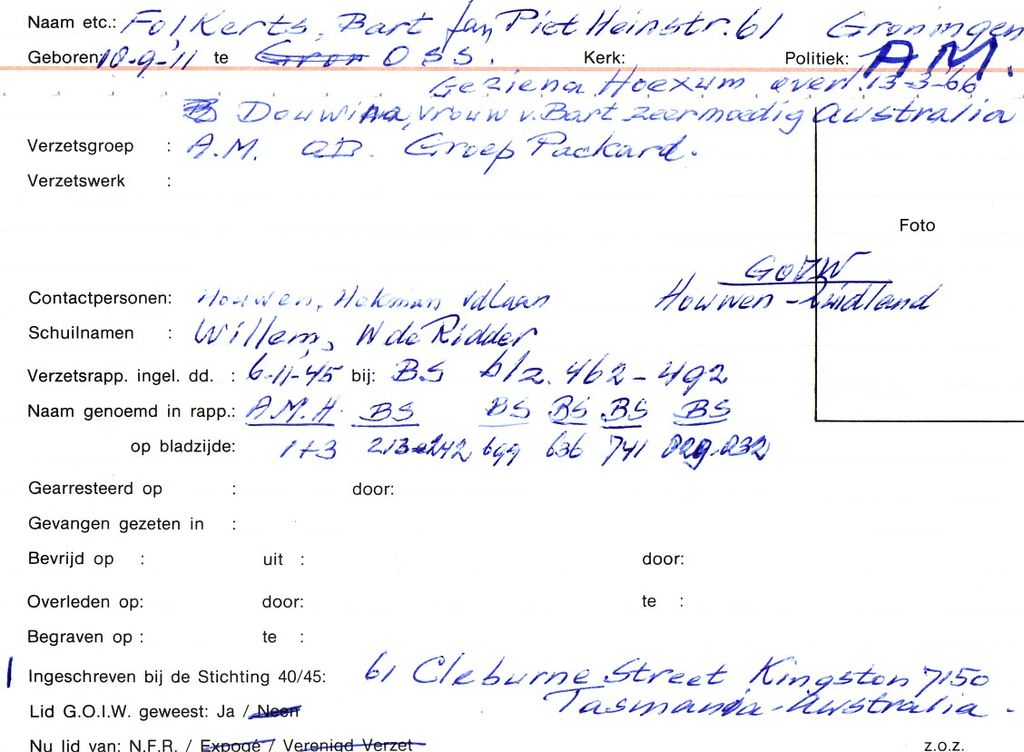 Naam etc.: Folkerts, Bart Jan, Piet Heinstr. 61 Groningen
Geboren 10-9-'11 te Gron OSS. Kerk: Politiek: A.M.
Geziena Hoexum over. 13-3-66
Douwina, vrouw v. Bart zeer moedig Australia
Verzetsgroep : A.M. OD. Groep Packard.
Verzetswerk :
Foto
GOIW
Contactpersonen: Houwen, Hokman vdLaan Houwen - Zuidland
Schuilnamen : Willem, W de Ridder
Verzetsrapp. ingel. dd. : 6-11-45 bij: B.S blz. 462-492
Naam genoemd in rapp.: A.M.H. BS BS BS BS BS
op bladzijde: 1+3 213-242 699 636 741 829-832
Gearresteerd op : door:
Gevangen gezeten in :
Bevrijd op : uit : door:
Overleden op: door: te :
Begraven op : te :
Ingeschreven bij de Stichting 40/45: 61 Cleburne Street Kingston 7150
Lid G.O.I.W. geweest: Ja / Neen Tasmania - Australia.
Nu lid van: N.F.R. / Expogé / Verenigd Verzet z.o.z.